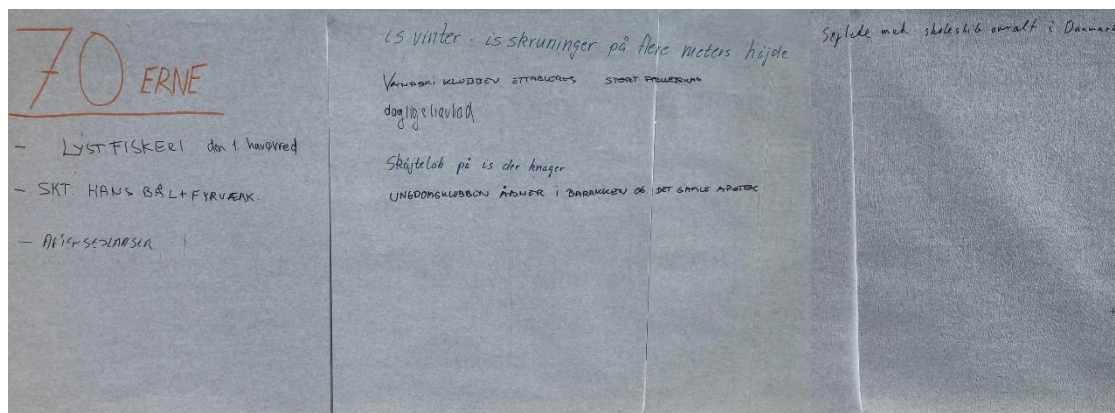 70 ERNE
- LYSTFISKERI den 1. havørred
- SKT. HANS BÅL + FYRVÆRK.
- AFTENSEJLADSER
is vinter. is skruninger på flere meters højde
VANDSKI KLUBBEN ETTABLERES STORT FÆLLESKAB
daglige havbad
Skøjteløb på is der knager
UNGDOMSKLUBBEN ÅBNER i BARAKKEN OG DET GAMLE APOTEK
Sejlede med skoleskib omalt i Danmark